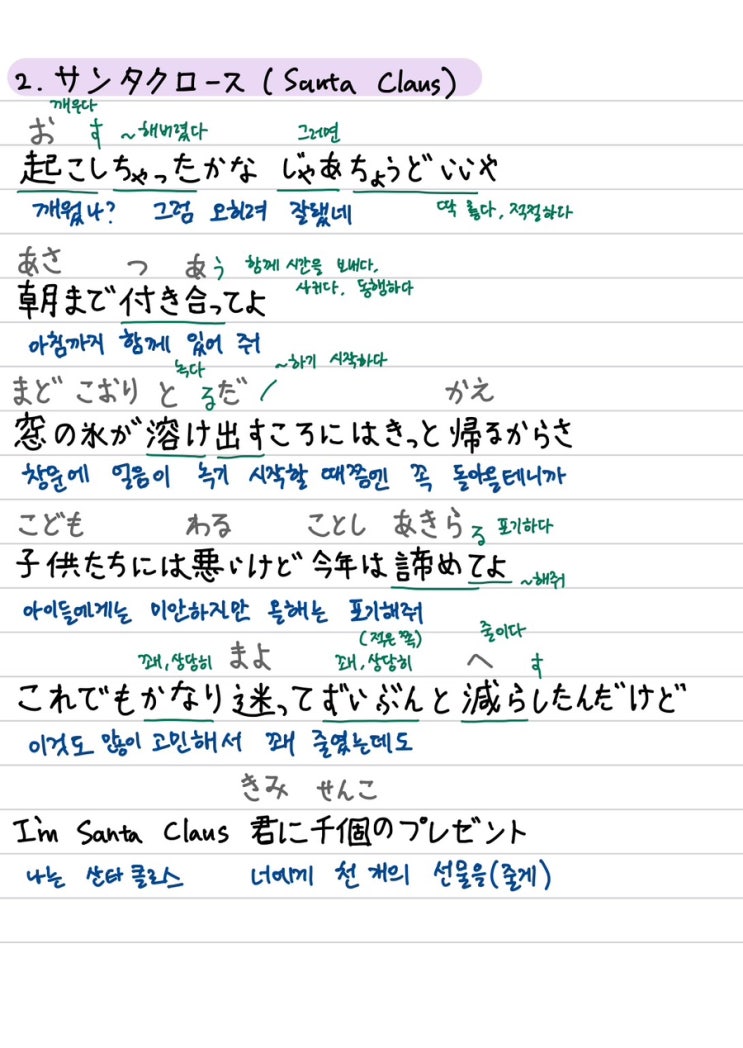 2. サンタクロース (Santa Claus)
깨우다
お す ~해버렸다 그러면
起こしちゃったかな じゃあちょうどいいや
깨웠나? 그럼 오히려 잘됐네 딱 좋다, 적절하다
あさ つ あ う 함께 시간을 보내다,
사귀다, 동행하다
朝まで付き合ってよ
아침까지 함께 있어 줘
녹다 ~하기 시작하다
まど こおり と るだ かえ
窓の氷が溶け出すころにはきっと帰るからさ
창문에 얼음이 녹기 시작할 때쯤엔 꼭 돌아올테니까
こども わる ことし あきら る 포기하다
子供たちには悪いけど 今年は諦めてよ ~해줘
아이들에게는 미안하지만 올해는 포기해줘
(적은 쪽) 줄이다
꽤, 상당히 まよ 꽤, 상당히 へ す
これでもかなり迷ってずいぶんと減らしたんだけど
이것도 많이 고민해서 꽤 줄였는데도
きみ せんこ
I'm Santa Claus 君に千個のプレゼント
나는 산타클로스 너에게 천 개의 선물을(줄게)